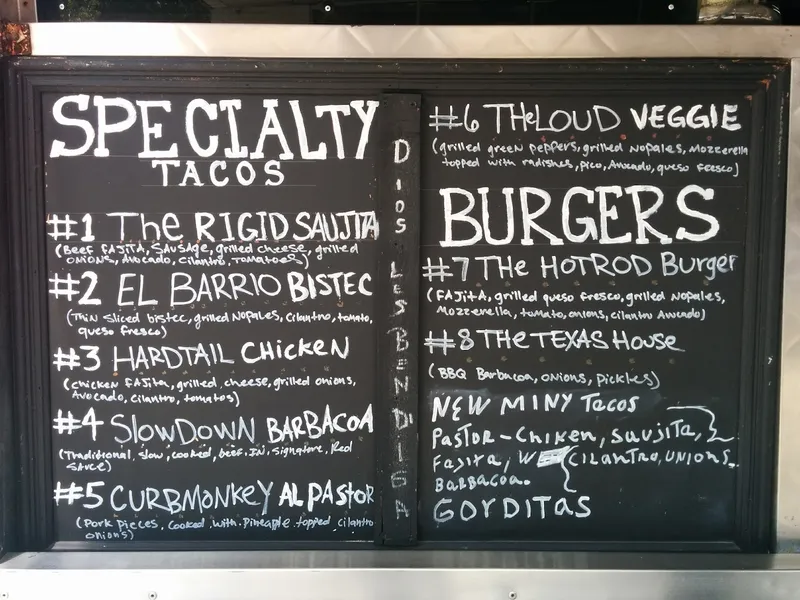 SPECIALTY
TACOS
#1 The RIGID SAUJITA
(Beef FAJITA, SAUSAGE, grilled cheese, grilled
ONIONS, AVOCADO, cilantro, TOMATOES)
#2 EL BARRIO BISTEC
(Thin sliced bistec, grilled Nopales, Cilantro, tomato,
queso fresco)
#3 HARDTAIL CHICKEN
(chicken FAJITA, grilled, cheese, grilled onions,
Avocado, cilantro, tomatos)
#4 SlowDOWN BARBACOA
(Traditional, slow, cooked, beef, IN, signature, Red
SAUCE)
#5 CURBMONKEY AL PASTOR
(Pork pieces, cooked with Pineapple topped cilantro
onions)
DIOS LES BENDIGA
#6 THe LOUD VEGGIE
(grilled green peppers, grilled Nopales, Mozzerella
topped with radishes, pico, Avocado, queso fresco)
BURGERS
#7 THe HOTROD Burger
(FAJITA, grilled queso fresco, grilled Nopales,
Mozzerella, tomato, onions, cilantro Avocado)
#8 THe TEXAS House
(BBQ Barbacoa, onions, pickles)
NEW MINY Tacos
Pastor-Chiken, Saujita,
Fajita, W CILANTRO, UNIONS.
Barbacoa.
GORDITAS